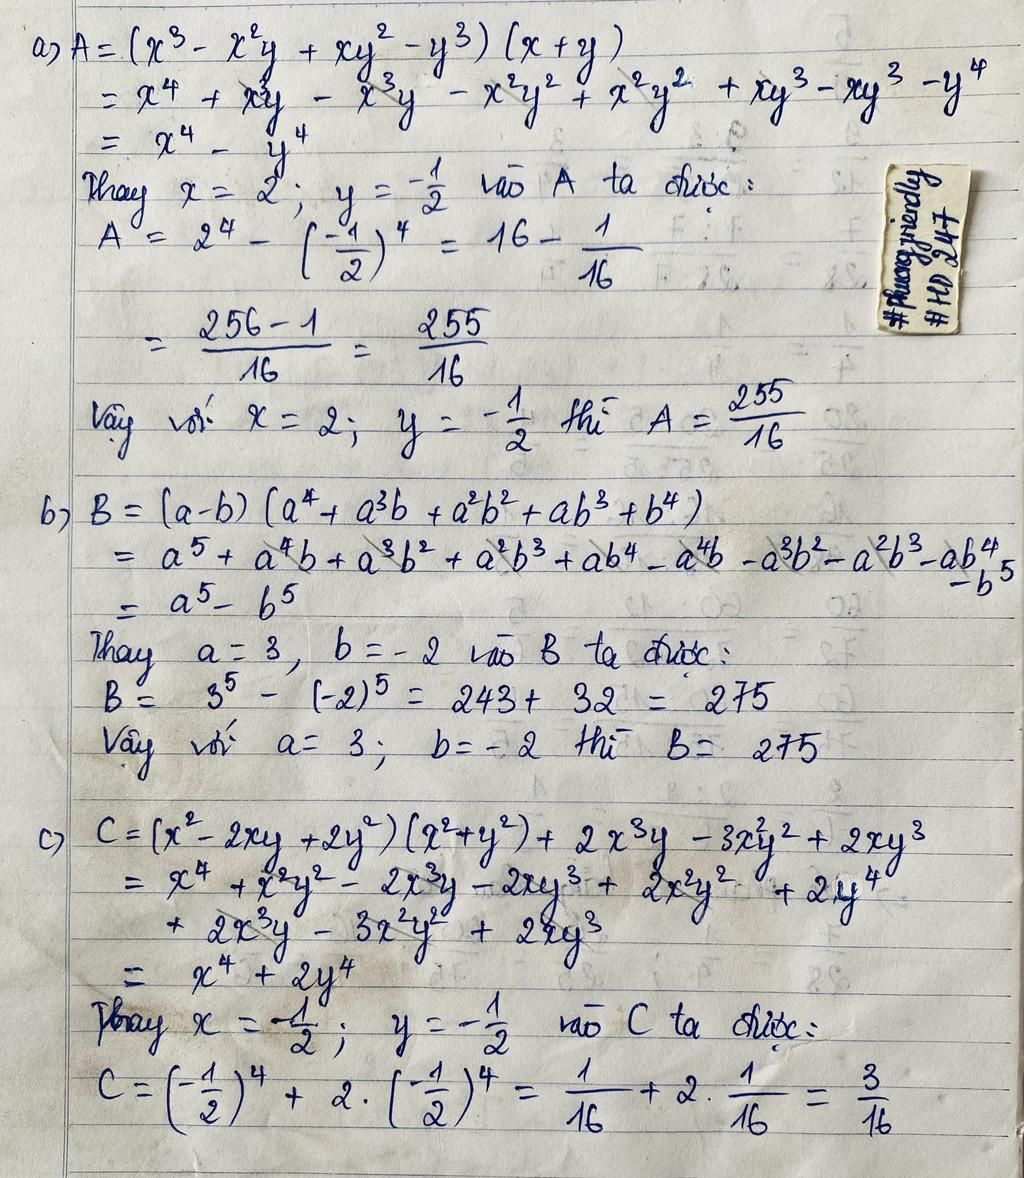 a) A = (x³ - x²y + xy² - y³) (x + y)
= x⁴ + x³y - x³y - x²y² + x²y² + xy³ - xy³ - y⁴
= x⁴ - y⁴
Thay x = 2; y = -1/2 vào A ta được:
A = 2⁴ - (-1/2)⁴ = 16 - 1/16
= (256 - 1)/16 = 255/16
Vậy với x = 2; y = -1/2 thì A = 255/16
b) B = (a-b) (a⁴ + a³b + a²b² + ab³ + b⁴)
= a⁵ + a⁴b + a³b² + a²b³ + ab⁴ - a⁴b - a³b² - a²b³ - ab⁴
- b⁵
= a⁵ - b⁵
Thay a = 3, b = - 2 vào B ta được:
B = 3⁵ - (-2)⁵ = 243 + 32 = 275
Vậy với a = 3; b = - 2 thì B = 275
c) C = (x² - 2xy + 2y²) (x² + y²) + 2x³y - 3x²y² + 2xy³
= x⁴ + x²y² - 2x³y - 2xy³ + 2x²y² + 2y⁴
+ 2x³y - 3x²y² + 2xy³
= x⁴ + 2y⁴
Thay x = -1/2; y = -1/2 vào C ta được:
C = (-1/2)⁴ + 2. (-1/2)⁴ = 1/16 + 2. 1/16 = 3/16
# HD 247